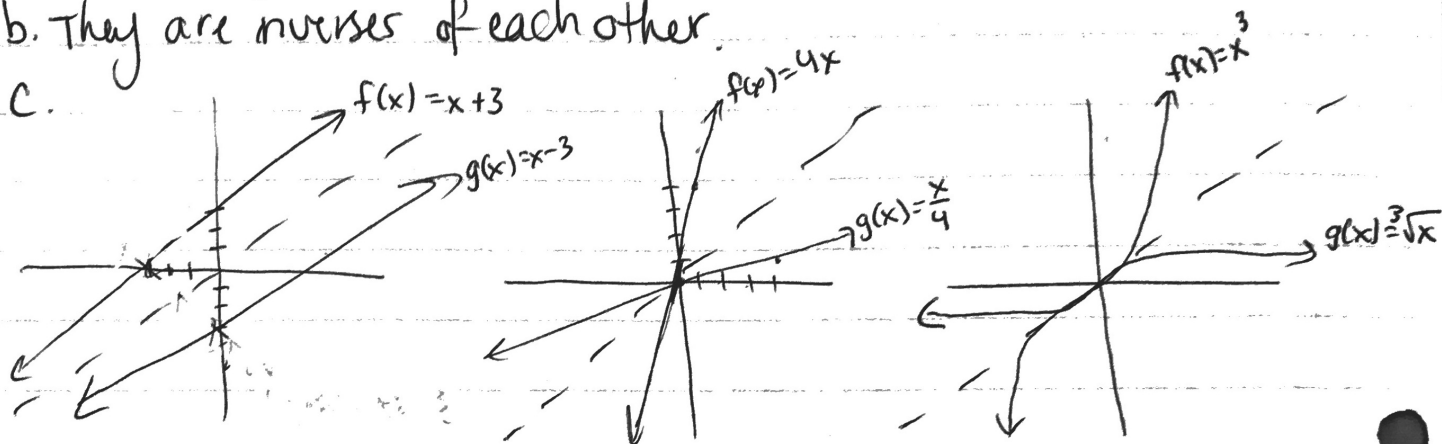 b. They are inverses of each other.
c.
f(x)=x+3
g(x)=x-3
f(x)=4x
g(x)=x/4
f(x)=x³
g(x)=³√x